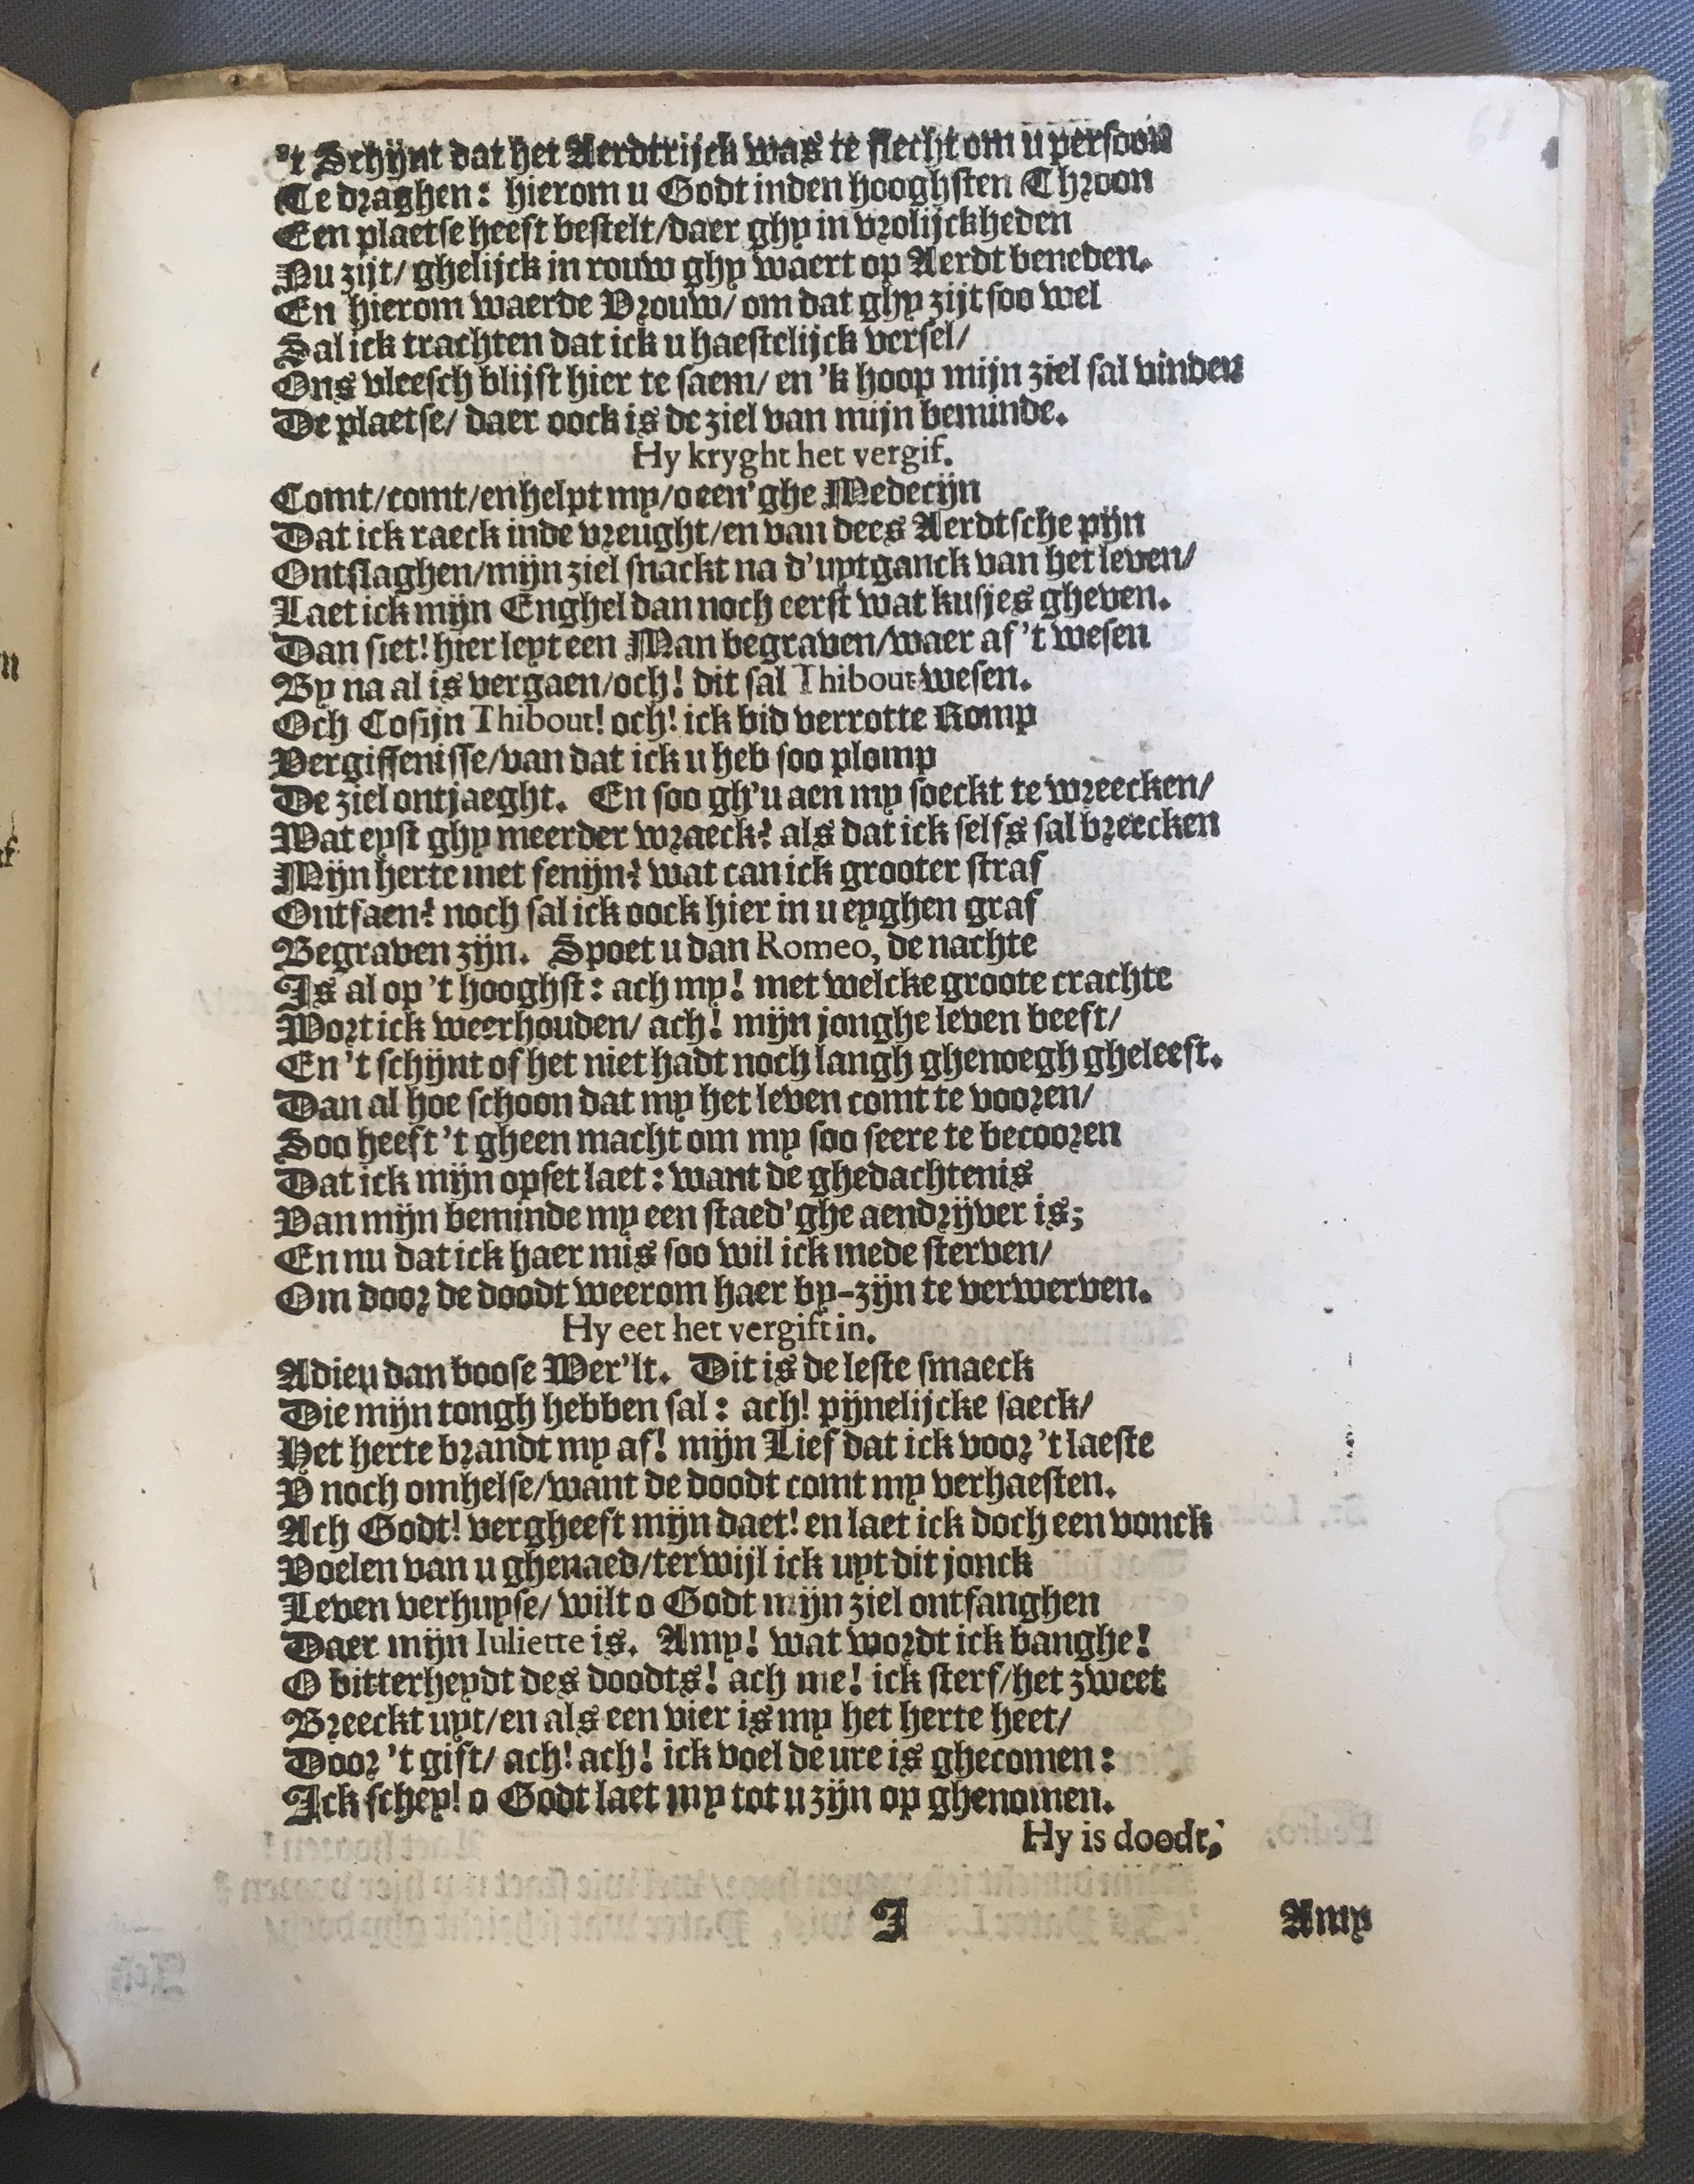 't Schijnt dat het Aerdtrijck was te slecht om u persoon
Te draghen: hierom u Godt inden hooghsten Throon
Een plaetse heeft bestelt/daer ghy in vrolijckheden
Nu zijt/ ghelijck in rouw ghy waert op Aerdt beneden.
En hierom waerde Vrouw/ om dat ghy zijt soo wel
Sal ick trachten dat ick u haestelijck versel/
Ons vleesch blijft hier te saem/ en 'k hoop mijn ziel sal vinden
De plaetse/ daer oock is de ziel van mijn beminde.
Hy kryght het vergif.
Comt/comt/en helpt my/o een'ghe Medecijn
Dat ick raeck inde vreught/en van dees Aerdtsche pijn
Ontslaghen/mijn ziel snackt na d'uytganck van het leven/
Laet ick mijn Enghel dan noch eerst wat kusjes gheven.
Dan siet! hier leyt een Man begraven/waer af 't wesen
By na al is vergaen/och! dit sal Thibout wesen.
Och Cosijn Thibout! och! ick bid verrotte Romp
Vergiffenisse/van dat ick u heb soo plomp
De ziel ontjaeght. En soo gh'u aen my soeckt te wreecken/
Wat eyst ghy meerder wraeck? als dat ick selfs sal breecken
Mijn herte met fenijn? wat can ick grooter straf
Ontfaen? noch sal ick oock hier in u eyghen graf
Begraven zijn. Spoet u dan Romeo, de nachte
Is al op 't hooghst: ach my! met welcke groote crachte
Wort ick weerhouden/ ach! mijn jonghe leven beeft/
En 't schijnt of het niet hadt noch langh ghenoegh gheleeft.
Dan al hoe schoon dat my het leven comt te vooren/
Soo heeft 't gheen macht om my soo seere te becooren
Dat ick mijn opset laet: want de ghedachtenis
Van mijn beminde my een staed'ghe aendrijver is;
En nu dat ick haer mis soo wil ick mede sterven/
Om door de doodt weerom haer by-zijn te verwerven.
Hy eet het vergift in.
Adieu dan boose Wer'lt. Dit is de leste smaeck
Die mijn tongh hebben sal: ach! pijnelijcke saeck/
Het herte brandt my af! mijn Lief dat ick voor 't laeste
V noch omhelse/want de doodt comt my verhaesten.
Ach Godt! vergheeft mijn daet! en laet ick doch een vonck
Voelen van u ghenaed/terwijl ick uyt dit jonck
Leven verhuyse/ wilt o Godt mijn ziel ontfanghen
Daer mijn Iuliette is. Amy! wat wordt ick banghe!
O bitterheydt des doodts! ach me! ick sterf/het zweet
Breeckt uyt/en als een vier is my het herte heet/
Door 't gift/ ach! ach! ick voel de ure is ghecomen:
Ick schey! o Godt laet my tot u zijn op ghenomen.
Hy is doodt,
I Amy